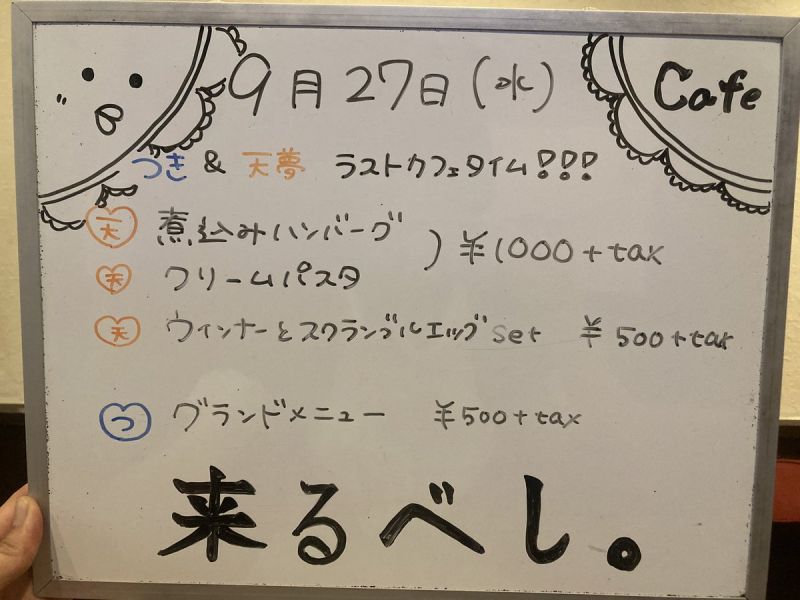 9月27日(水)
Cafe
づき & 天夢 ラストカフェタイム!!!
天 煮込みハンバーグ
天 クリームパスタ
) ¥1000+tax
天 ウィンナーとスクランブルエッグset ¥500+tax
つ グランドメニュー ¥500+tax
来るべし。